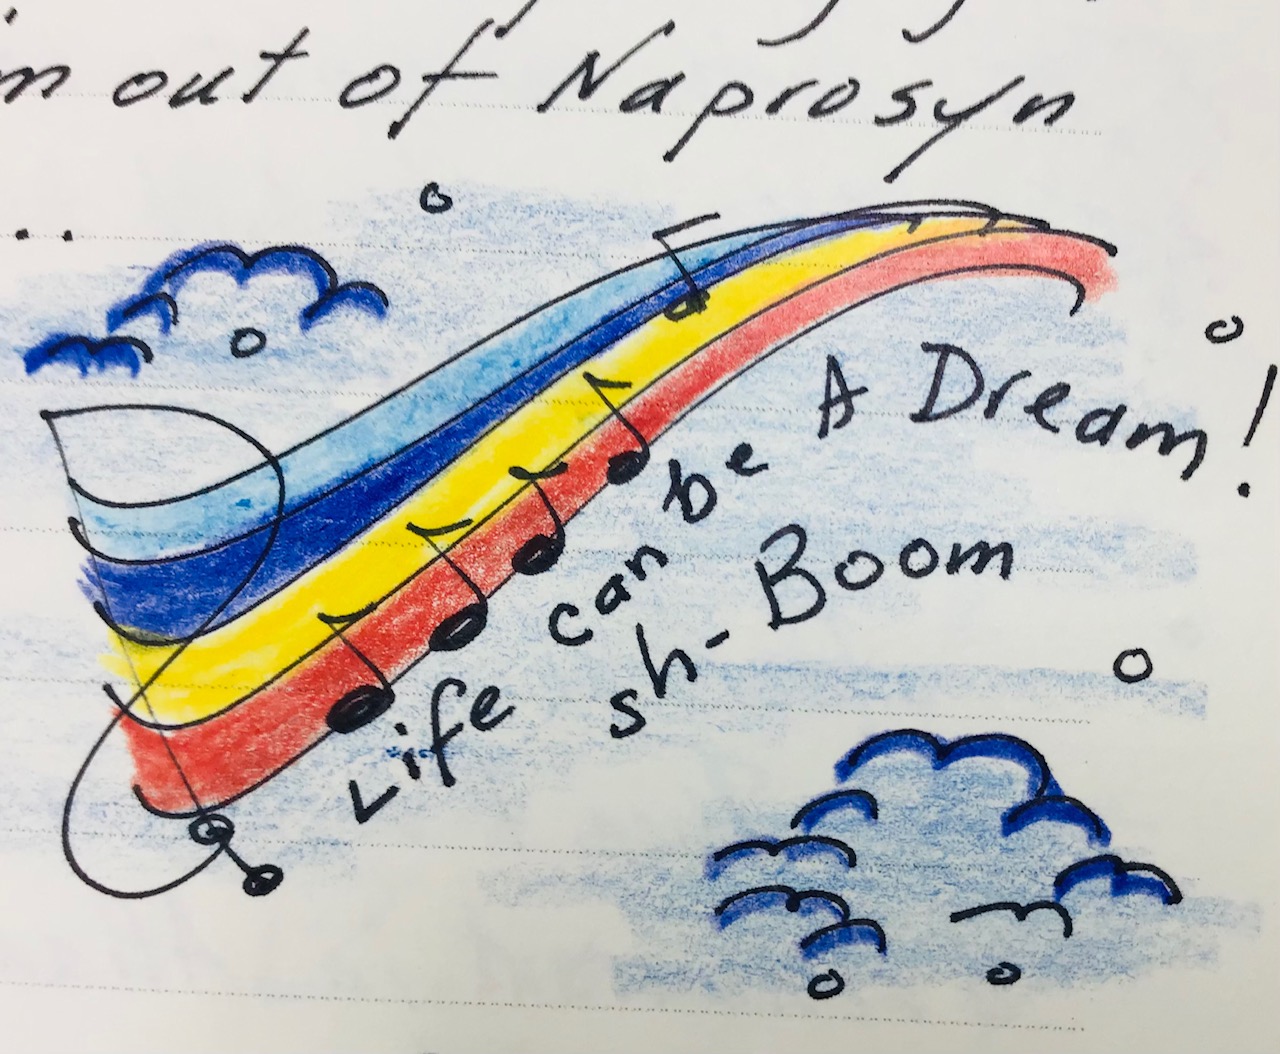 out of Naprosyn
...
Life can be A Dream!
sh-Boom